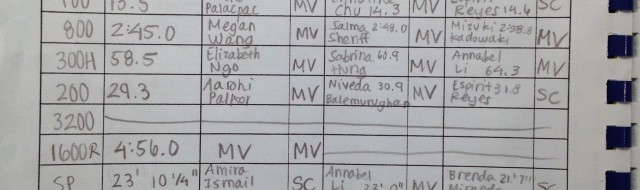 100 13.5 Palacpac MV Chu 14.3 MV Reyes 14.4 SC
800 2:45.0 Megan Wang MV Salma 2:48.0 Sheriff MV Mizuki 2:58.8 Kadowaki MV
300H 58.5 Elizabeth Ngo MV Sabrina 60.9 Hung MV Annabel Li 64.3 MV
200 29.3 Aarohi Palkar MV Niveda 30.9 Balemurughan MV Espirit 31.8 Reyes SC
3200
1600R 4:56.0 MV MV
SP 23' 10 1/4" Amira Ismail SC Annabel Li 22' 0" MV Brenda 21' 7"